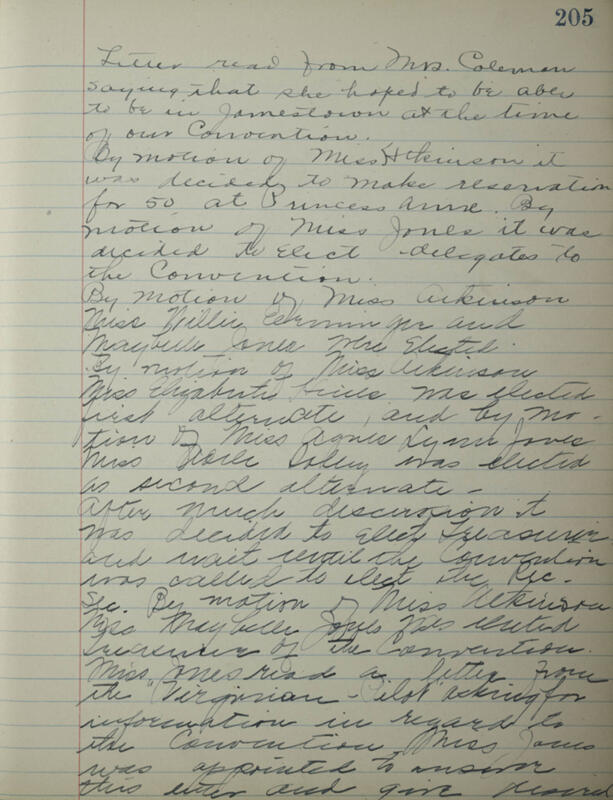 205
Letter read from Mrs. Coleman
saying that she hoped to be able
to be in Jamestown at the time
of our Convention.
By motion of Miss Atkinson it
was decided to make reservation
for 50 at Princess Anne. By
motion of Miss Jones it was
decided to elect delegates to
the Convention.
By motion of Miss Atkinson
Miss Willie and
Maybelle Jones were Elected.
By motion of Miss Atkinson
Miss Elizabeth was elected
first alternate, and by mo-
tion of Miss Agnes Lynn Jones
Miss was elected
as second alternate -
After much discussion it
was decided to elect Treasurer
and wait until the Convention
was called to elect the Rec.
Sec. By motion of Miss Atkinson
Miss Maybelle Jones was elected
Treasurer of the Convention.
Miss Jones read a letter from
the "Virginian-Pilot asking for
information in regard to
the Convention, Miss Jones
was appointed to answer
this letter and give desired